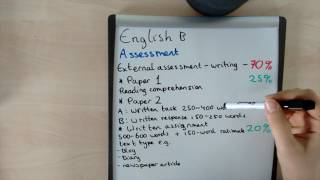 English B
Assessment
External assessment - writing - 70%
* Paper 1 25%
Reading comprehension
* Paper 2
A: written task 250-400 w
B: written response 150-250 words
* Written assignment 20%
500-600 words + 150-word rationale
text type e.g.
- Blog
- Diary
- newspaper article